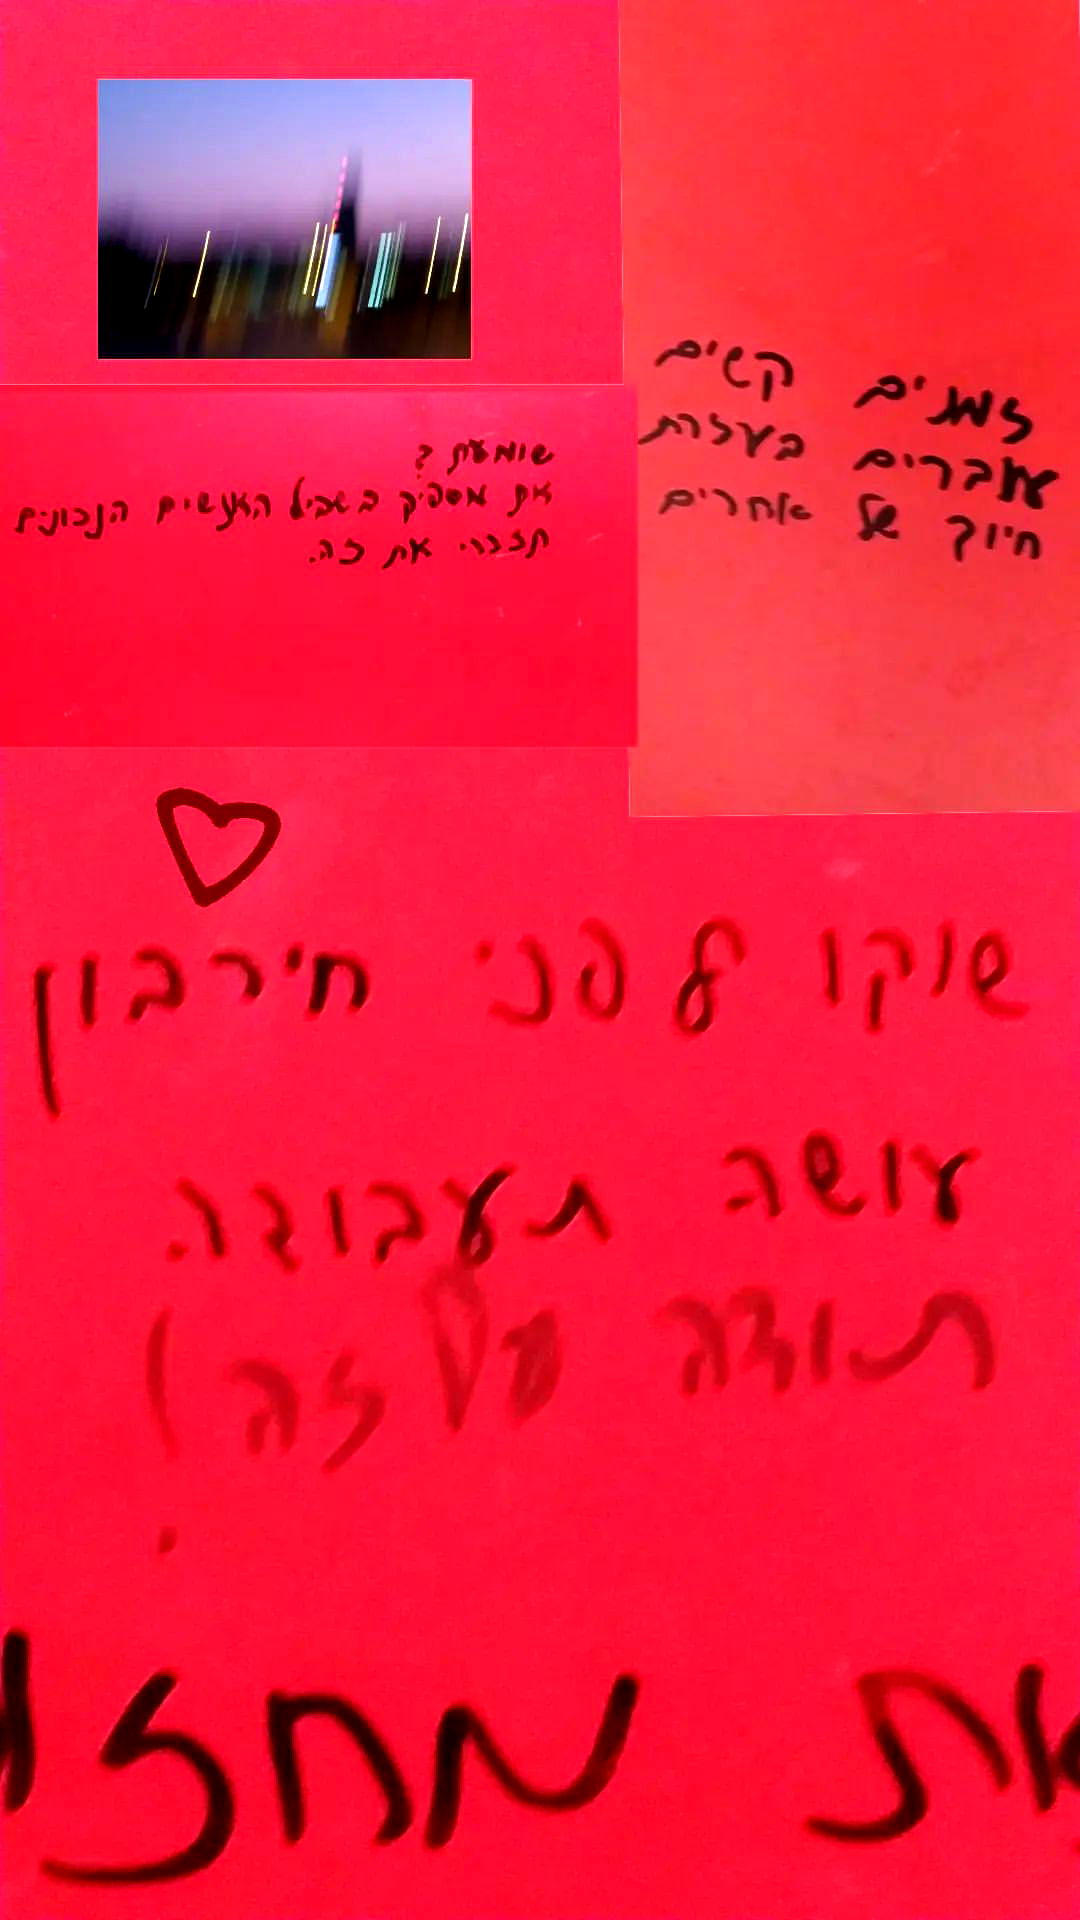 זמנים קשים
עוברים בעזרת
חיוך של אחרים
שומעת?
את מספיק בשביל האנשים הנכונים
תזכרי את זה.
שוקו לפני חירבון
עושה תעבודה
תודה על זה)
את